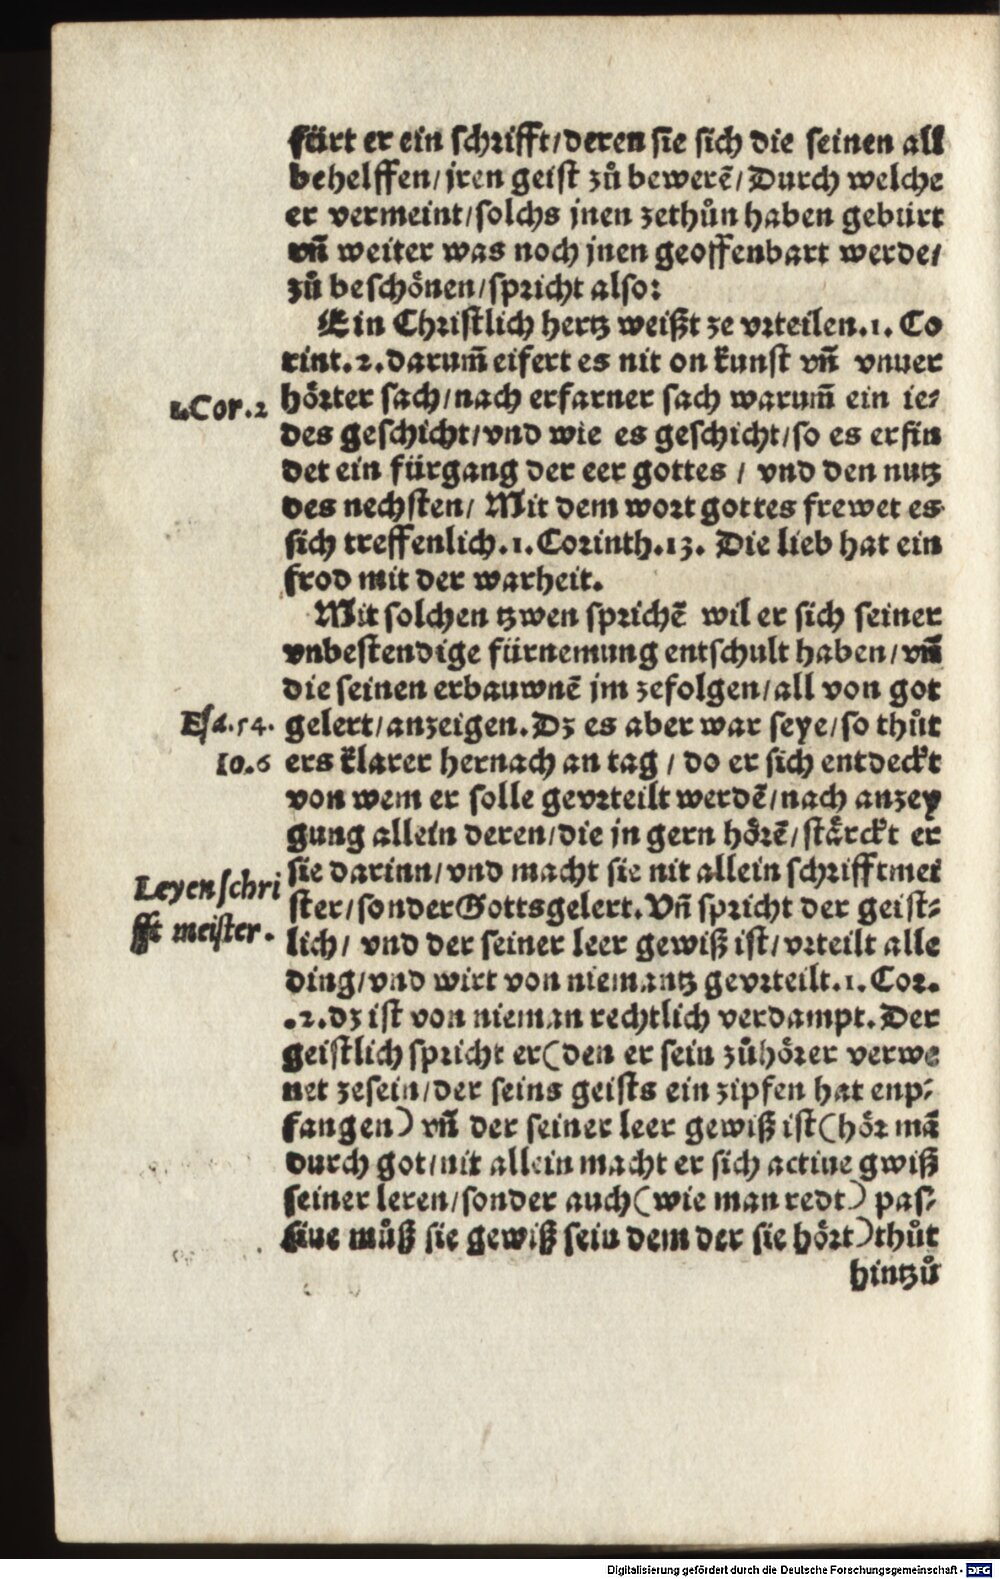 fürt er ein schrifft/deren sie sich die seinen all
behelffen/jren geist zů bewerē/Durch welche
er vermeint/solchs jnen zethůn haben gebürt
vñ weiter was noch jnen geoffenbart werde/
zů beschönen/spricht also:
Ein Christlich hertz weißt ze vrteilen.1. Co
rint.2.darum̄ eifert es nit on kunst vñ vnuer
hörter sach/nach erfarner sach warum̄ ein ie⸗
1.Cor.2
des geschicht/vnd wie es geschicht/so es erfin
det ein fürgang der eer gottes / vnd den nutz
des nechsten/ Mit dem wort gottes frewet es
sich treffenlich.1.Corinth.13. Die lieb hat ein
frod mit der warheit.
Mit solchen tzwen sprichē wil er sich seiner
vnbestendige fürnemung entschult haben/vñ
die seinen erbauwnē jm zefolgen/all von got
Esa.54.
gelert/anzeigen.Dz es aber war seye/so thůt
Io.6
ers klarer hernach an tag / do er sich entdeckt
von wem er solle gevrteilt werdē/nach anzey
gung allein deren/die jn gern hörē/stärckt er
sie darinn/vnd macht sie nit allein schrifftmei
Leyen schri
fft meister.
ster/sonder Gottsgelert.Vñ spricht der geist⸗
lich/ vnd der seiner leer gewiß ist/vrteilt alle
ding/vnd wirt von niemantz gevrteilt.1. Cor.
.2.dz ist von nieman rechtlich verdampt.Der
geistlich spricht er(den er sein zůhörer verwe
net zesein/der seins geists ein zipfen hat enp⸗
fangen) vñ der seiner leer gewiß ist(hör mā
durch got/nit allein macht er sich actiue gwiß
seiner leren/sonder auch(wie man redt) pas⸗
siue můß sie gewiß sein dem der sie hört)thůt
hintzů
Digitalisierung gefördert durch die Deutsche Forschungsgemeinschaft - DFG